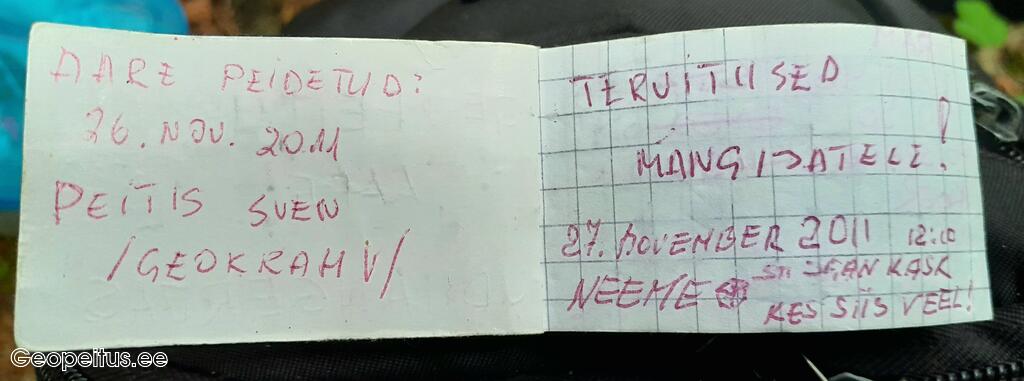 AARE PEIDETUD:
26. NOV. 2011
PEITIS SVEN
/GEOKRAHV/
TERVITUSED
MÄNGIJATELE!
27. NOVEMBER 2011 12:10
NEEME
JAAN KASK
KES SIIS VEEL!
Geopeitus.ee